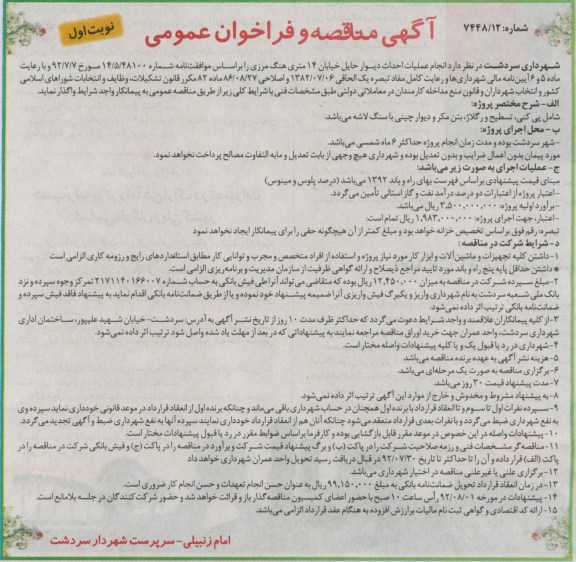 شماره: ۷۴۴۸/۱۲
آگهی مناقصه و فراخوان عمومی
نوبت اول
شهرداری سردشت در نظر دارد انجام عملیات احداث دیوار حایل خیابان ۱۴ متری هنگ مرزی را براساس موافقت‌نامه شماره ۱۴/۵/۴۸۱۰۰ مورخ ۹۲/۷/۷ و با رعایت
ماده ۵ و ۶ آیین‌نامه مالی شهرداری‌ها و رعایت کامل مفاد تبصره یک الحاقی ۱۳۸۲/۰۷/۰۶ و اصلاحی ۸۶/۰۸/۲۷ ماده ۸۲ مکرر قانون تشکیلات، وظایف و انتخابات شوراهای اسلامی
کشور و انتخاب شهرداران و قانون منع مداخله کارمندان در معاملاتی دولتی طبق مشخصات فنی با شرایط کلی زیر از طریق مناقصه عمومی به پیمانکار واجد شرایط واگذار نماید.
الف- شرح مختصر پروژه:
شامل پی کنی، تسطیح و رگلاژ، بتن مکر و دیوار چینی با سنگ لاشه می‌باشد.
ب- محل اجرای پروژه:
-شهر سردشت بوده و مدت زمان انجام پروژه حداکثر ۶ ماه شمسی می‌باشد.
مورد پیمان بدون اعمال ضرایب و بدون تعدیل بوده و شهرداری هیچ وجهی از بابت تعدیل و مابه التفاوت مصالح پرداخت نخواهد نمود.
ج- عملیات اجرای به صورت زیر می‌باشد:
مبنای قیمت پیشنهادی براساس فهرست بهای راه و باند ۱۳۹۲ می‌باشد (درصد پلوس و مینوس)
-اعتبار پروژه از اعتبارات دو درصد درآمد نفت و گاز استانی تأمین می‌گردد.
-برآورد اولیه پروژه: ۳,۵۰۰,۰۰۰,۰۰۰ ریال می‌باشد.
-اعتبار، جهت اجرای پروژه: ۱,۹۸۳,۰۰۰,۰۰۰ ریال تمام است:
تبصره: رقم فوق براساس تخصیص خزانه خواهد بود و مبلغ کمتر از آن هیچگونه حقی را برای پیمانکار ایجاد نخواهد نمود
د- شرایط شرکت در مناقصه:
۱-داشتن کلیه تجهیزات و ماشین‌آلات و ابزار کار مورد نیاز پروژه و استفاده از افراد متخصص و مجرب و توانایی کار مطابق استانداردهای رایج و رزومه کاری الزامی است.
* داشتن حداقل پایه پنج راه و باند مورد تایید مراجع ذیصلاح و ارائه گواهی ظرفیت از سازمان مدیریت و برنامه‌ریزی الزامی است.
۲-مبلغ سپرده شرکت در مناقصه به میزان ۱۲,۴۵۰,۰۰۰ ریال بوده که متقاضی می‌تواند آنرا طی فیش بانکی به حساب شماره ۲۱۷۱۱۴۰۱۶۶۰۰۷ تمرکز وجوه سپرده و نزد
بانک ملی شعبه سردشت به نام شهرداری واریز و یکبرگ فیش واریزی آنرا ضمیمه پیشنهاد خود نموده و یا از طریق ضمانت‌نامه بانکی اقدام نماید به پیشنهاد فاقد فیش سپرده و
ضمانت‌نامه بانکی ترتیب اثر داده نمی‌شود.
۳-از کلیه پیمانکاران علاقمند و واجد شرایط دعوت می‌گردد که حداکثر ظرف مدت ۱۰ روز از تاریخ نشر آگهی به آدرس: سردشت-خیابان شهید علیپور، ساختمان اداری
شهرداری سردشت، واحد عمران جهت خرید اوراق مناقصه مراجعه نمایند به پیشنهاداتی که در بعد از مهلت یاد شده واصل شود ترتیب اثر داده نمی‌شود.
۴-شهرداری در رد یا قبول یک و یا کلیه پیشنهادات واصله مختار است.
۵-هزینه نشر آگهی به عهده برنده مناقصه می‌باشد.
۶-برگزاری مناقصه به صورت یک مرحله‌ای می‌باشد.
۷-مدت پیشنهاد قیمت ۲۰ روز می‌باشد.
۸-به پیشنهاد مشروط و مخدوش و خارج از موارد این آگهی ترتیب اثر داده نمی‌شود.
۹-سپرده نفرات اول تا سوم و تا انعقاد قرارداد با برنده اول همچنان در حساب شهرداری باقی می‌ماند و چنانکه برنده اول از انعقاد قرارداد در موعد قانونی خودداری نماید سپرده وی
به نفع شهرداری ضبط می‌گردد و با نفرات بعدی قرارداد منعقد می‌شود چنانکه آنان هم از انعقاد قرارداد خودداری نمایند سپرده آنها به نفع شهرداری ضبط و آگهی تجدید می‌گردد.
۱۰-پیشنهادات واصله در این خصوص در موعد مقرر قابل بازگشایی بوده و کارفرما براساس ضوابط مقرر در رد یا قبول پیشنهادات مختار است.
۱۱-مناقصه‌گر مشخصات فنی و رزمه صلاحیت شرکت را در پاکت (ب) و برگ پیشنهاد قیمت شرکت و برآورد در مناقصه را در پاکت (ج) و فیش بانکی شرکت در مناقصه را در
پاکت (الف) قرارداده و آن را تا حداکثر تا تاریخ ۹۲/۰۷/۳۰ در قبال دریافت رسید تحویل واحد عمران شهرداری خواهد داد
۱۲-برگزاری علنی یا غیرعلنی مناقصه در اختیار شهرداری می‌باشد.
۱۳-در زمان انعقاد قرارداد تحویل ضمانت‌نامه بانکی به مبلغ ۹۹,۱۵۰,۰۰۰ ریال به عنوان حسن انجام تعهدات و حسن انجام کار ضروری است.
۱۴-پیشنهادات در مورخه ۹۲/۰۸/۰۱ رأس ساعت ۱۰ صبح با حضور اعضای کمیسیون مناقصه گذار باز و قرائت خواهد شد و حضور شرکت کنندگان در جلسه بلامانع است.
۱۵-ارائه کد اقتصادی و گواهی ثبت نام مالیات بر ارزش افزوده به هنگام عقد قرارداد الزامی می‌باشد.
امام زنبیلی- سرپرست شهردار سردشت